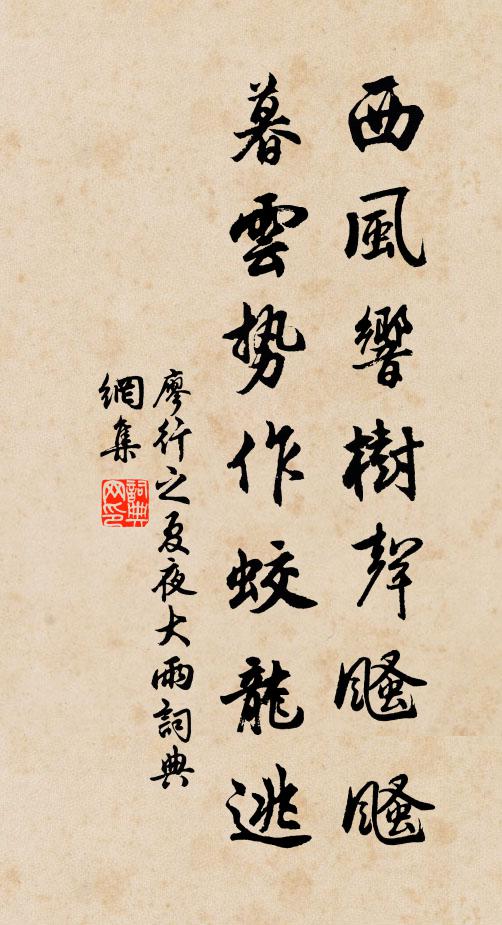 西風響樹聲颼颼
暮雲勢作蛟龍逃
廖行之夏夜大雨詞典
網集
詞典網印